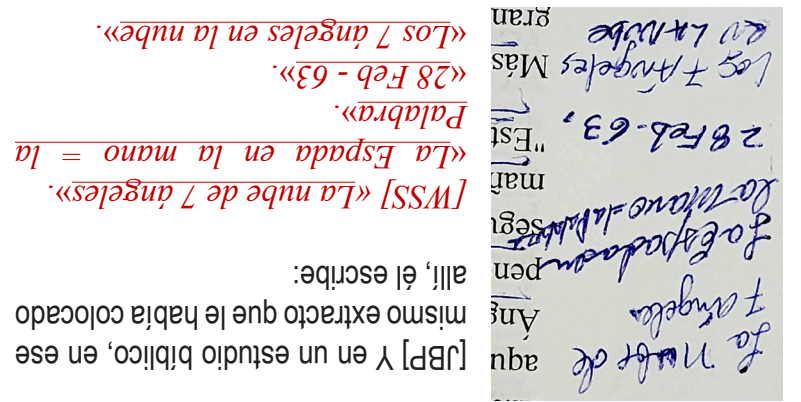 [JBP] Y en un estudio bíblico, en ese
mismo extracto que le había colocado
allí, él escribe:
[WSS] «La nube de 7 ángeles».
«La Espada en la mano = la
Palabra».
«28 Feb - 63».
«Los 7 ángeles en la nube».
La nube de
7 ángeles
La Espada en
la Mano = la Palabra
28 Feb-63,
Los 7 Ángeles
en LA Nube
aque
Áng
pen
segu
mañ
"Est
Más
gran